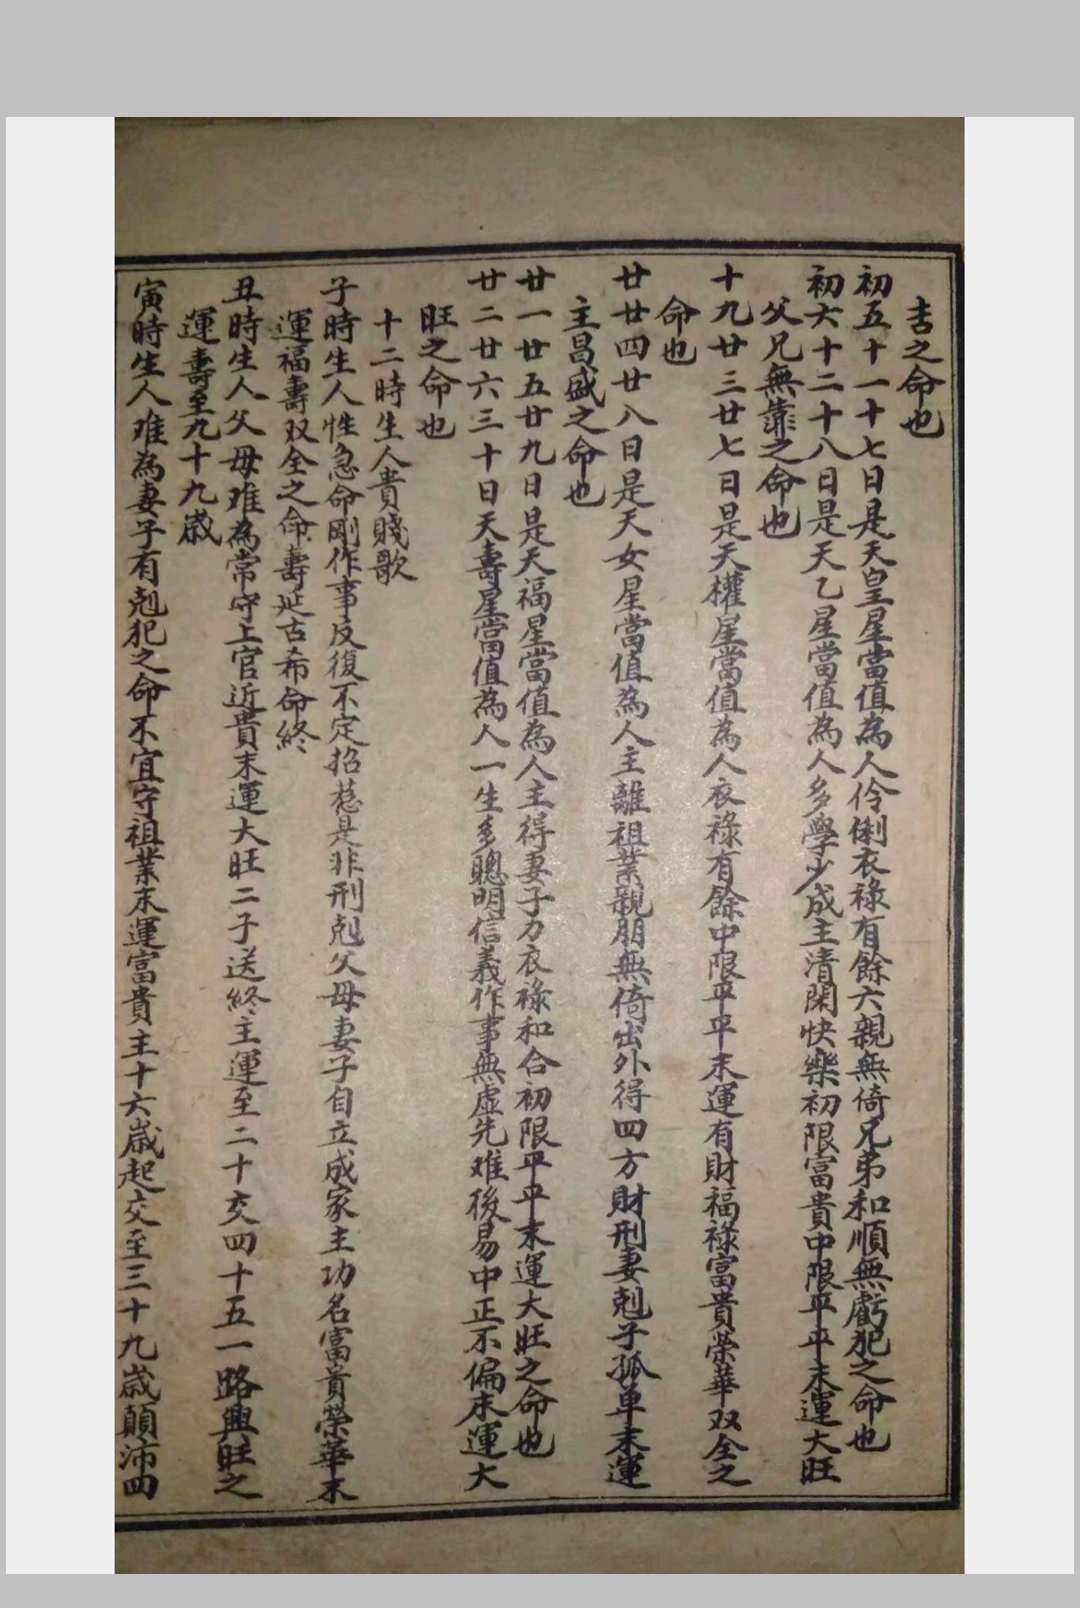 吉之命也
初五十一十七日是天皇星當值為人伶俐衣祿有餘六親無倚兄弟和順無虧犯之命也
初六十二十八日是天乙星當值為人多學少成主清閑快樂初限富貴中限平平末運大旺
父兄無靠之命也
十九廿三廿七日是天權星當值為人衣祿有餘中限平平末運有財福祿富貴榮華双全之
命也
廿廿四廿八日是天女星當值為人主離祖業親朋無倚出外得四方財刑妻剋子孤单末運
主昌盛之命也
廿一廿五廿九日是天福星當值為人主得妻子力衣祿和合初限平平末運大旺之命也
廿二廿六三十日天壽星當值為人一生多聰明信義作事無虛先难後易中正不偏末運大
旺之命也
十二時生人貴賤歌
子時生人性急命剛作事反復不定招惹是非刑剋父母妻子自立成家主功名富貴榮華末
運福壽双全之命壽延古希命終
丑時生人父母难為常守上官近貴末運大旺二子送終主運至二十交四十五一路興旺之
運壽至九十九歲
寅時生人难為妻子有剋犯之命不宜守祖業末運富貴主十六歲起交至三十九歲顛沛四